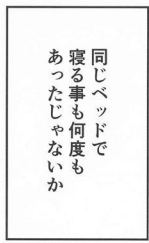 同じベッドで
寝る事も何度も
あったじゃないか